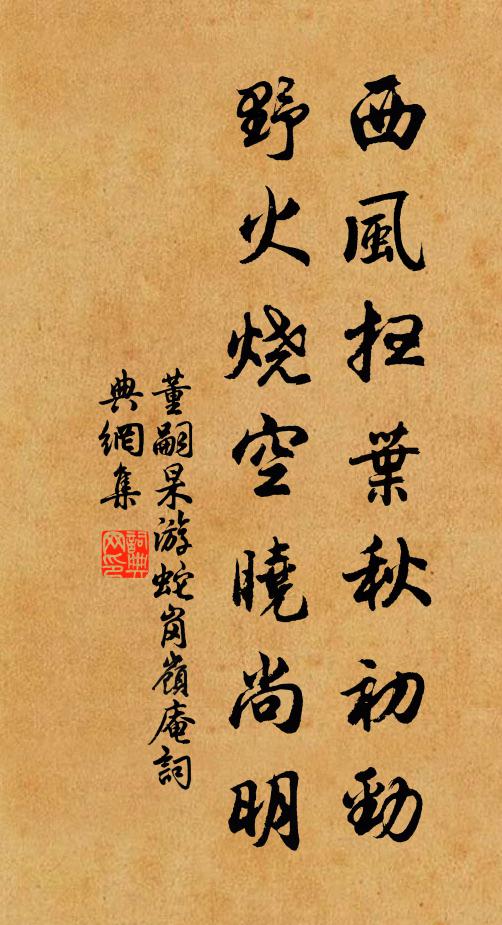 西風扫葉秋初勁
野火烧空曉尚明
董嗣杲游蛇岗嶺庵詞
典網集
詞典
网印